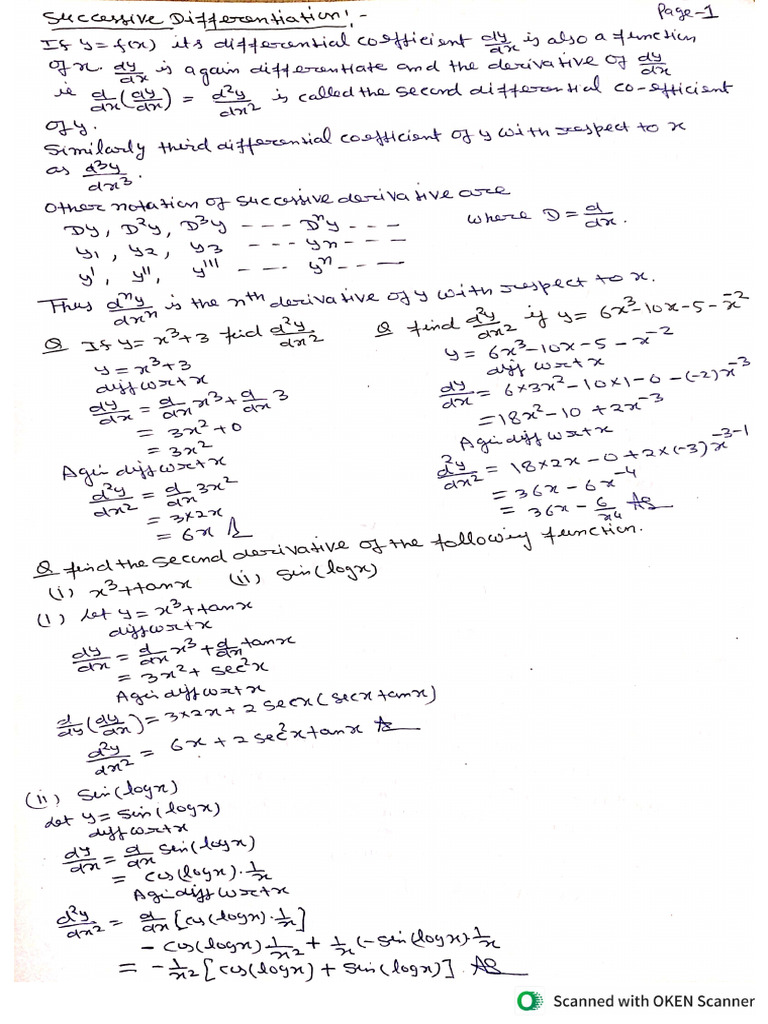 Successive Differentiation:-
Page-1
If y=f(x) its differential coefficient dy/dx is also a function
of x. dy/dx is again differentiate and the derivative of dy/dx
ie d/dx(dy/dx) = d²y/dx² is called the second differential co-efficient
of y.
Similarly third differential coefficient of y with respect to x
as d³y/dx³.
Other notation of successive derivative are
Dy, D²y, D³y ---- Dⁿy --- where D = d/dx.
y₁, y₂, y₃ --- yn ---
y', y'', y''' --- yⁿ ---
Thus dⁿy/dxⁿ is the nth derivative of y with respect to x.
Q If y = x³+3 find d²y/dx²
y = x³+3
diff w r t x
dy/dx = d/dx x³ + d/dx 3
= 3x²+0
= 3x²
Agin diff w r t x
d²y/dx² = d/dx 3x²
= 3×2x
= 6x A
Q find d²y/dx² if y = 6x³-10x-5-x⁻²
y = 6x³-10x-5-x⁻²
diff w r t x
dy/dx = 6×3x²-10×1-0-(-2)x⁻³
= 18x²-10+2x⁻³
Agin diff w r t x
d²y/dx² = 18×2x-0+2×(-3)x⁻³⁻¹
= 36x-6x⁻⁴
= 36x - 6/x⁴ As
Q find the second derivative of the following function.
(i) x³+tanx (ii) sin(logx)
(i) Let y = x³+tanx
diff w r t x
dy/dx = d/dx x³ + d/dx tanx
= 3x² + sec²x
Agin diff w r t x
d/dy(dy/dx) = 3×2x + 2 secx(secx tanx)
d²y/dx² = 6x + 2 sec²x tanx As
(ii) sin(logx)
Let y = sin(logx)
diff w r t x
dy/dx = d/dx sin(logx)
= cos(logx)·1/x
Agin diff w r t x
d²y/dx² = d/dx [cos(logx)·1/x]
- cos(logx) 1/x² + 1/x (-sin(logx)·1/x
= -1/x² [cos(logx) + sin(logx)]. As
Scanned with OKEN Scanner